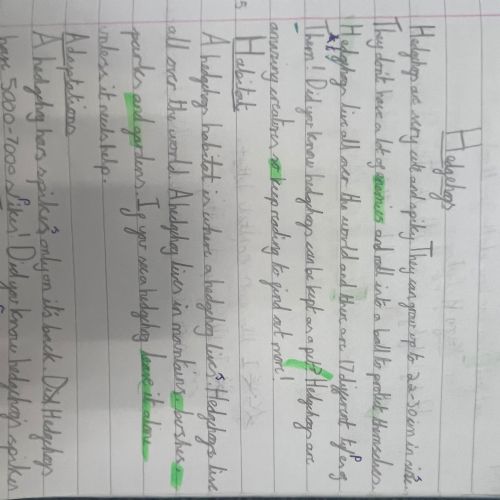 Hedgehogs
Hedgehogs are very cute and spiky. They can grow up to 22-30cm in size
They don't have a lot of enemies and roll into a ball to protect themselves.
Hedgehogs live all over the world and there are 17 different types of
them! Did you know hedgehogs can be kept as a pet? Hedgehogs are
amazing creatures so keep reading to find out more!
Habitat
A hedgehogs habitat is where a hedgehog lives. Hedgehogs live
all over the world. A hedgehog lives in mountains, bushes,
parks and gardens. If you see a hedgehog leave it alone
unless it needs help.
Adaptations
A hedgehog has spikes only on its back. Did Hedgehogs
have 5000-7000 spikes! Did you know hedgehog spikes